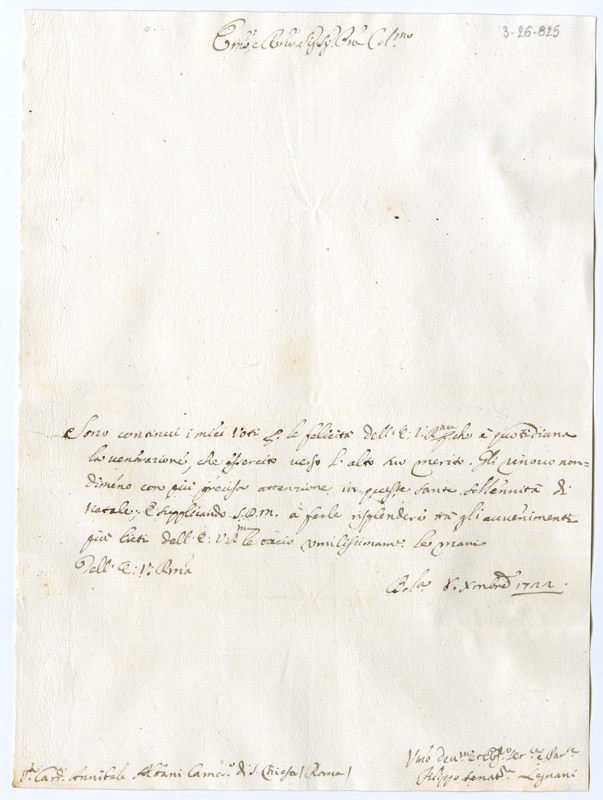 3-26-825
Em̃o e Rmõ Sig. Sig. Prõn Col.mo
Sono continui i miei voti p. le felicità dell' E: V: Rma, che è quotidiana
la venerazione, che esercito verso l' alto suo merito. Gli unisco non-
dimeno con più precisa attenzione in queste sante sollennità di
Natale; E supplicando S.D.M. à farle risplendere trà gli avvenimenti
più lieti dell' E: V: Rma le bacio umilissimam.e le mani
Dell' E: V: Rma
Bol.a 8. Xmbre 1722.
Umõ Devmõ et Obmõ Ser.re e Par.le
Filippo Senat.re Legnani
S.r Card. Annibale Albani Camer.o di S. Chiesa / Roma /